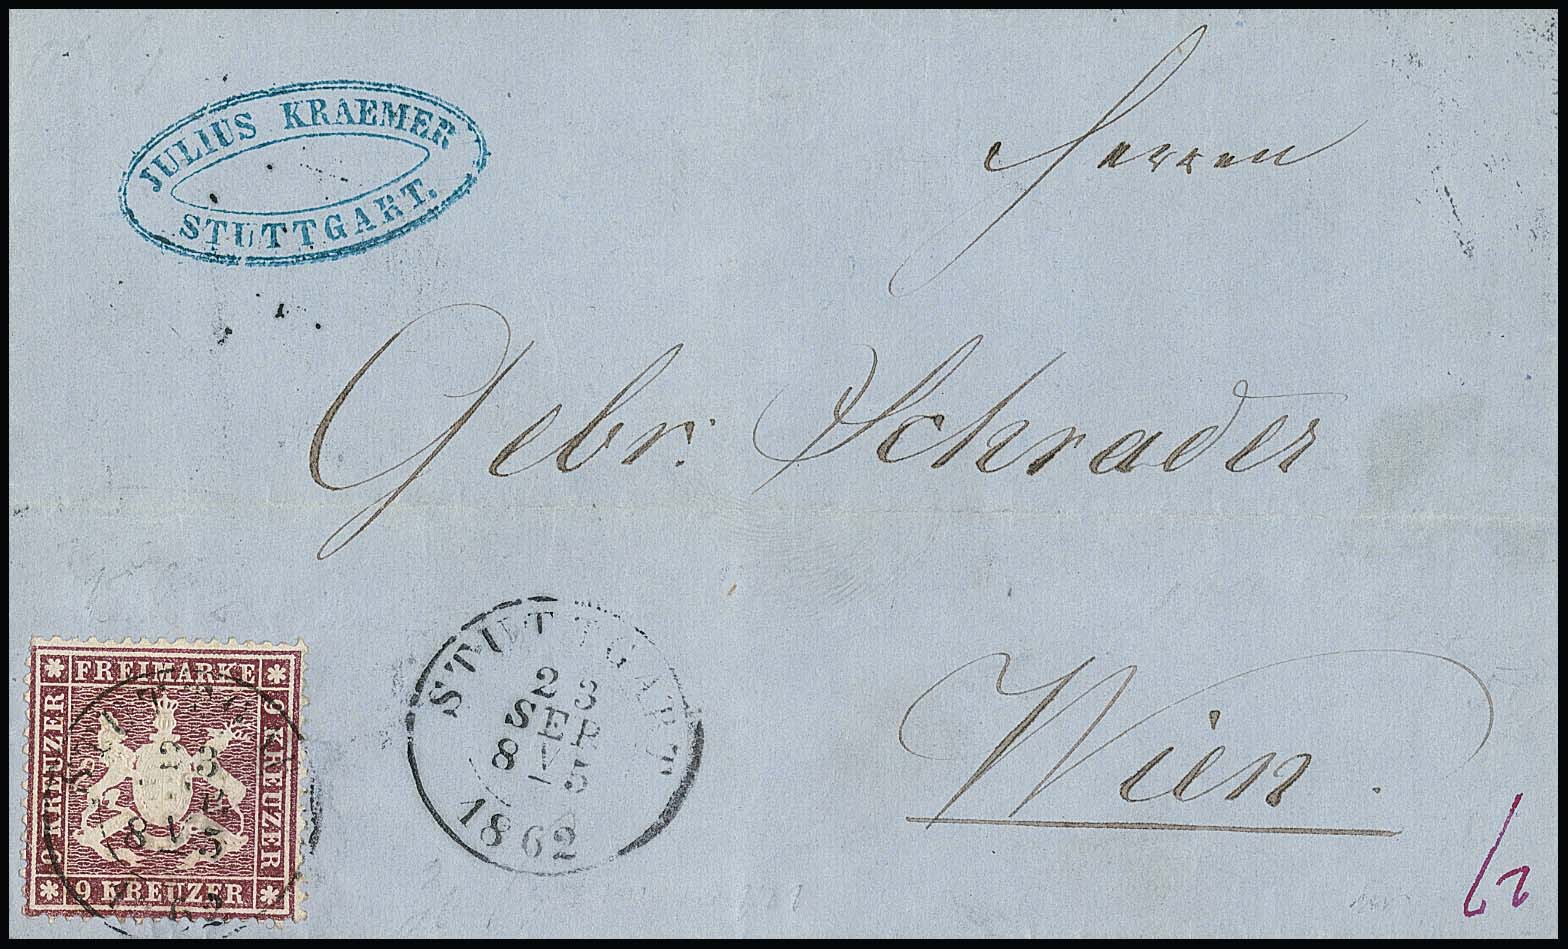 JULIUS KRAEMER
STUTTGART.
Herren
Gebr. Schrader
Wien.
STUTTGART
23
SEP
8 5
1862
FREIMARKE
9 KREUZER
9 KREUZER
9 KREUZER
23
8 5
62